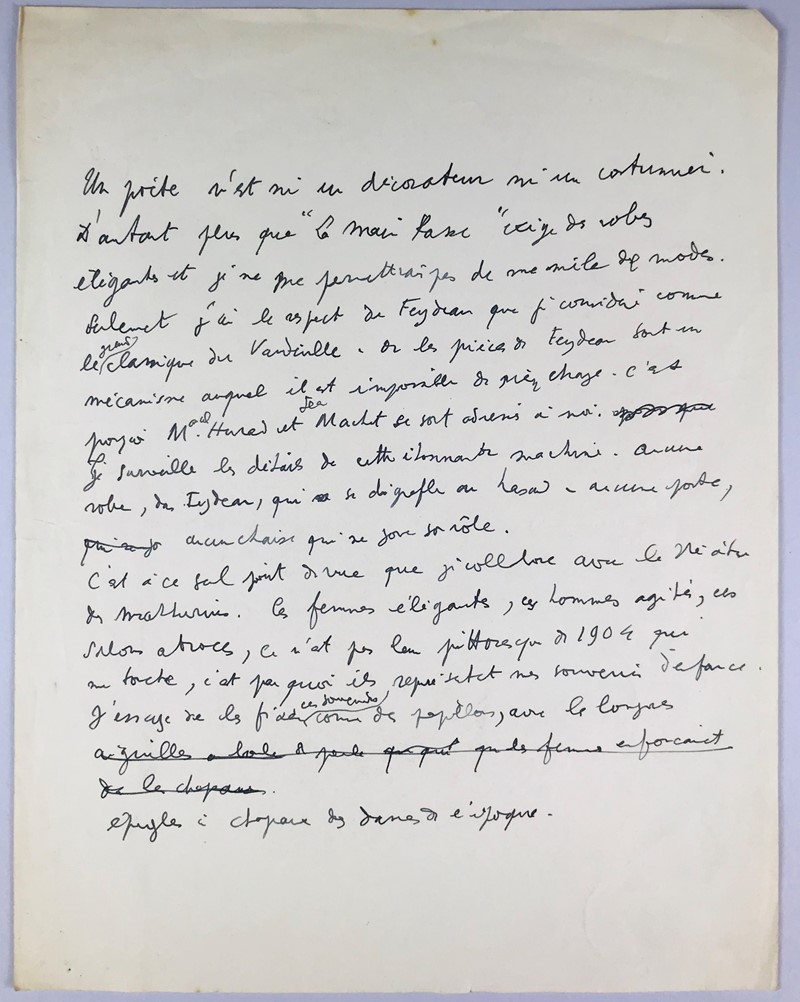 Un poète n'est ni un décorateur ni un costumier.
D'autant plus que "La Main Passe" exige des robes
élégantes et je ne me permettrais pas de me mêler de modes.
Seulement j'ai le respect de Feydeau que je considère comme
le grand classique du Vaudeville. Or les pièces de Feydeau sont un
mécanisme auquel il est impossible de rien changer. C'est
pourquoi Mad. Harry et Jean Machet se sont adressés à moi.
Je surveille les détails de cette étonnante machine. Aucune
robe, dans Feydeau, qui se dégrafe au hasard - aucune porte,
aucune chaise qui ne joue son rôle.
C'est à ce seul point de vue que je collabore avec le Théâtre
des Mathurins. Ces femmes élégantes, ces hommes agités, ces
salons atroces, ce n'est pas leur pittoresque de 1904 qui
me touche, c'est parce qu'ils représentent mes souvenirs d'enfance.
J'essaye de les fixer ces souvenirs, comme des papillons, avec les longues
aiguilles à boule de perle que les femmes enforçaient
dans les chapeaux.
épingles à chapeaux des dames de l'époque.